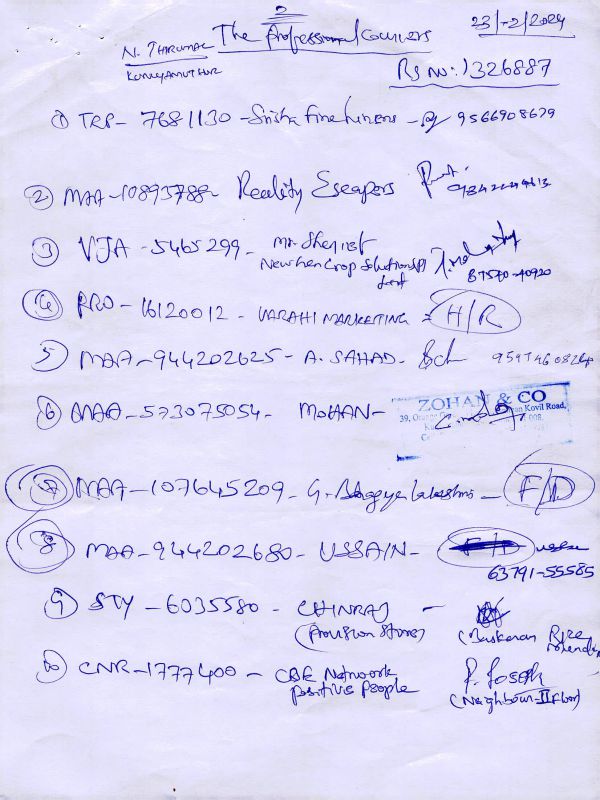 2
23/-2/2024
N. THIRUMAL The Professional Couriers
KUNIYAMUTHUR
RS NO:-1326887
① TRP- 7681130 - Srisha Fine Linens - 9566908679
② MAA-108937882- Reality Escapers
③ VJA -5465299- Mr. Sherief
Newhen Crop Solutions
④ PRO-16120012 - VARAHI MARKETING = H/R
⑤ MAA-944202625- A. SAHAD-
⑥ MAA-573075054- MOHAN-
ZOHAN & CO
39, Kovil Road,
⑦ MAA-107645209- G. Bhagya Lakshmi - F/D
⑧ MAA-944202680- USSAIN- F/D
63791-55585
⑨ STY -6035580 - CHINRAJ -
(Provision Store) (Baskaran Rice
⑩ CNR-1777400- CBE Network P. Joseph
positive people (Neighbour-II Floor)